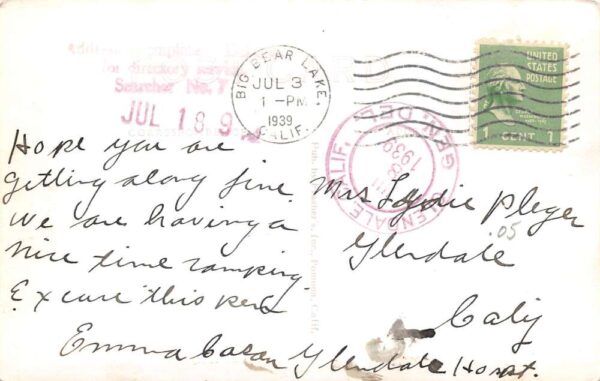 BIG BEAR LAKE,
JUL 3
1 - PM
1939
CALIF.
UNITED
STATES
POSTAGE
1 CENT 1
for directory service
Searcher No. 7
JUL 18 9
GLENDALE, CALIF.
GEN. DEL.
1939
Hope you are
getting along fine
we are having a
nice time camping
Excuse this pen
Emma
Mrs Lydie Pleger
.05
Glendale
Calif
Glendale Hospt.